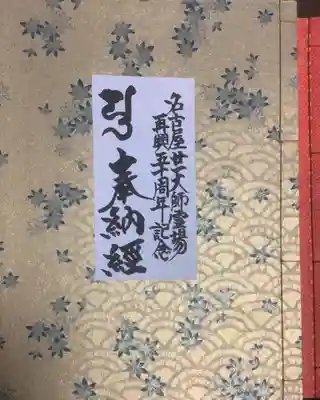 名古屋廿一大師霊場
再興五十周年記念
奉納経